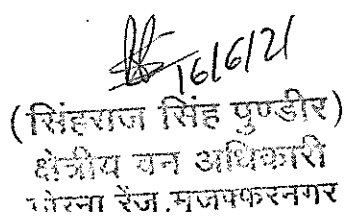 16/6/21
(सिंहराज सिंह पुण्डीर)
क्षेत्रीय वन अधिकारी
रेंज, मुजफ्फरनगर